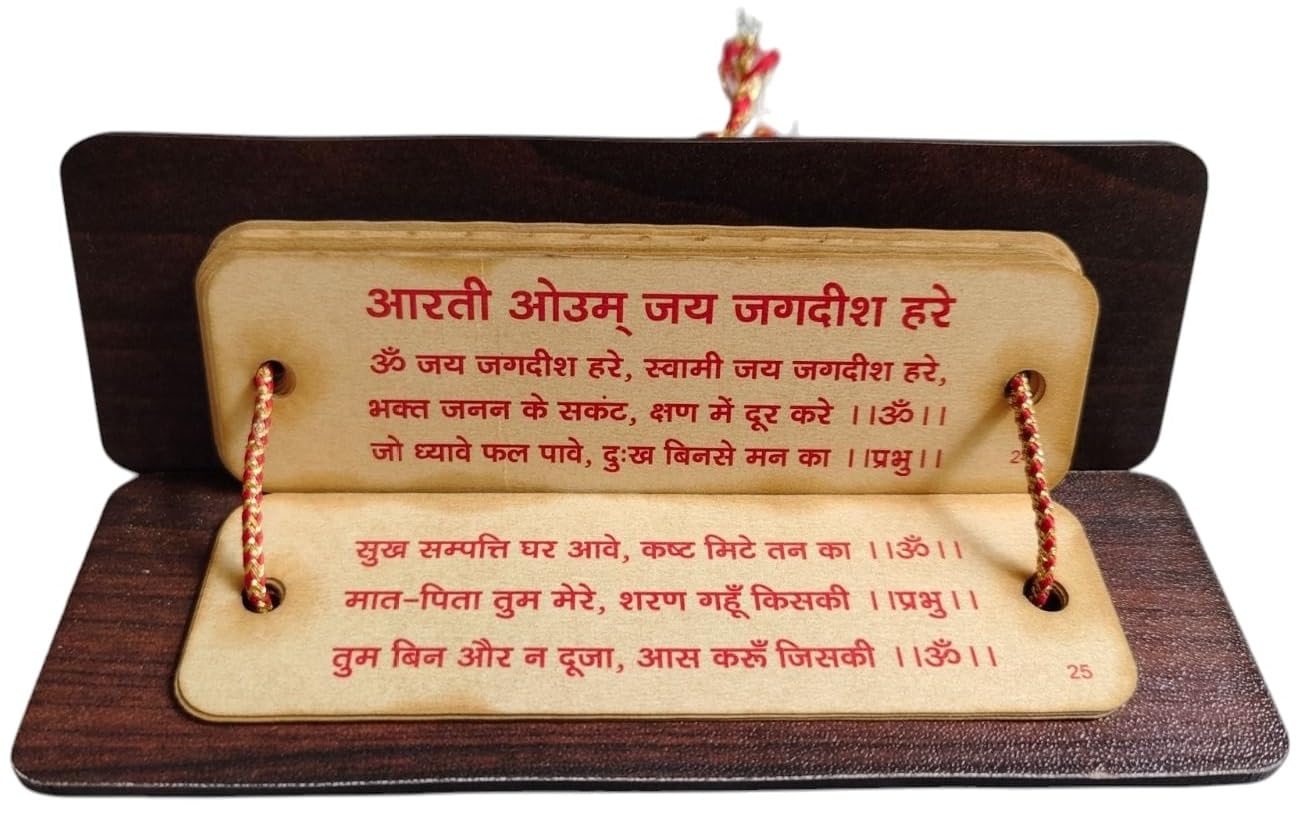 आरती ओउम् जय जगदीश हरे
ॐ जय जगदीश हरे, स्वामी जय जगदीश हरे,
भक्त जनन के सकंट, क्षण में दूर करे ।।ॐ।।
जो ध्यावे फल पावे, दुःख बिनसे मन का ।।प्रभु।।
सुख सम्पत्ति घर आवे, कष्ट मिटे तन का ।।ॐ।।
मात-पिता तुम मेरे, शरण गहूँ किसकी ।।प्रभु।।
तुम बिन और न दूजा, आस करूँ जिसकी ।।ॐ।।
25